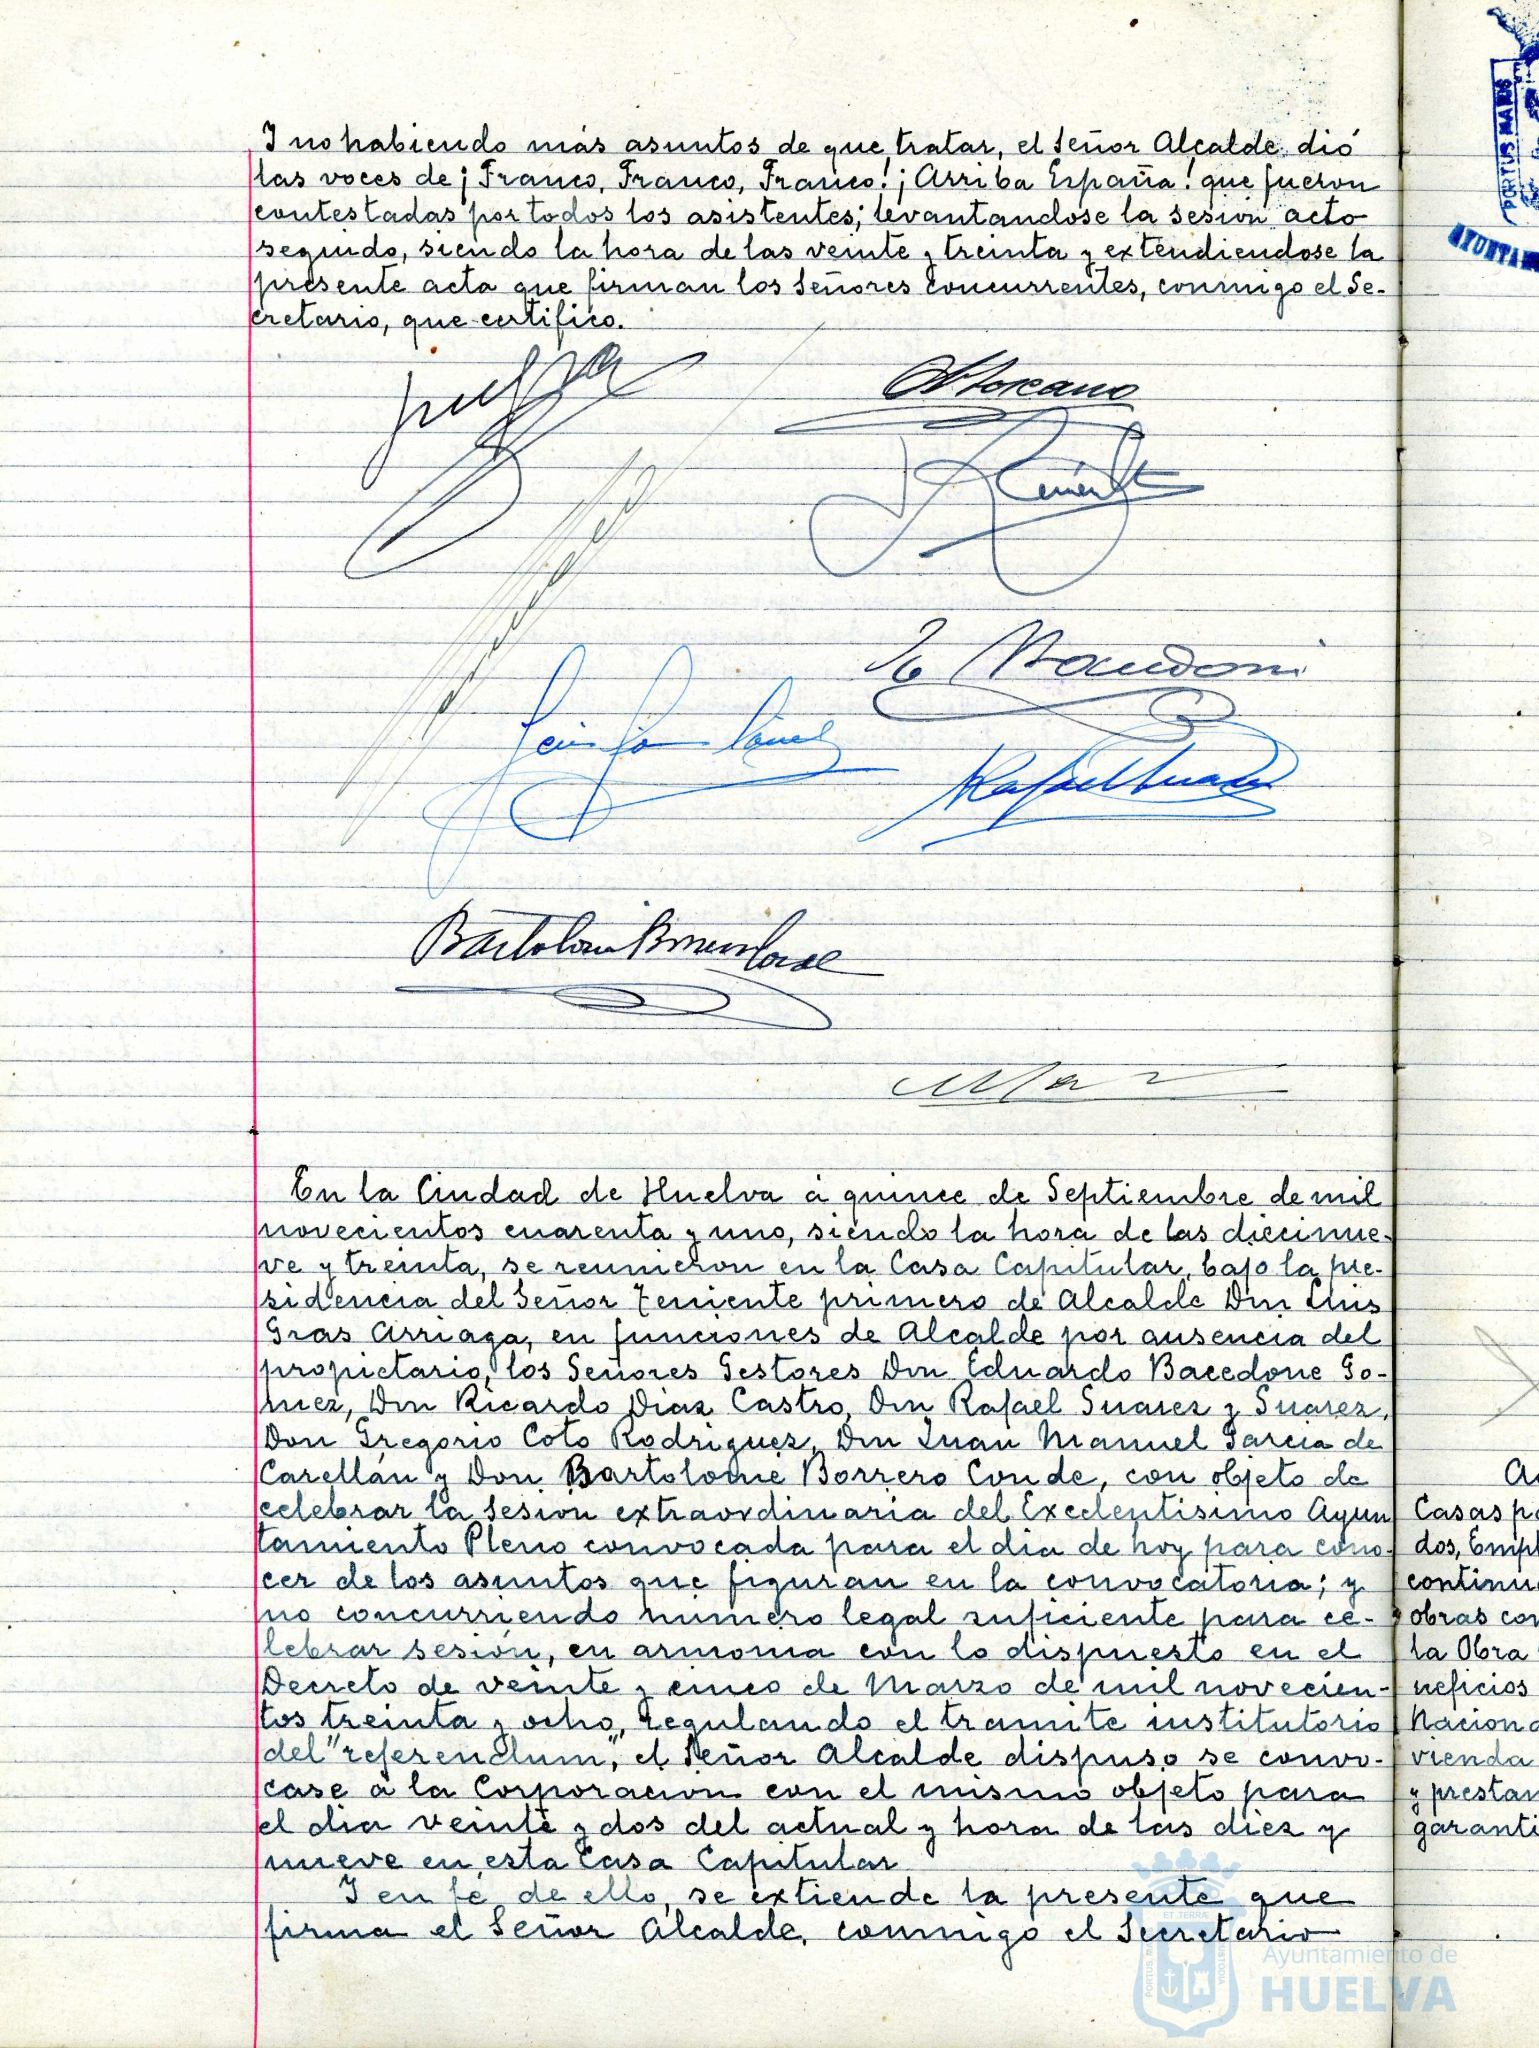 I no habiendo más asuntos de que tratar, el Señor Alcalde dió
las voces de ¡Franco, Franco, Franco! ¡Arriba España! que fueron
contestadas por todos los asistentes; levantandose la sesión acto
seguido, siendo la hora de las veinte y treinta y extendiendose la
presente acta que firman los Señores concurrentes, conmigo el Se-
cretario, que certifico.
Rafael Suarez
En la Ciudad de Huelva á quince de Septiembre de mil
novecientos cuarenta y uno, siendo la hora de las diecinue-
ve y treinta, se reunieron en la Casa Capitular, bajo la pre-
sidencia del Señor Teniente primero de Alcalde Don Luis
Gras Arriaga, en funciones de Alcalde por ausencia del
propietario, los Señores Gestores Don Eduardo Bacedone Go-
mez, Don Ricardo Diaz Castro, Don Rafael Suarez y Suarez,
Don Gregorio Coto Rodriguez, Don Juan Manuel Garcia de
Carellán y Don Bartolome Borrero Conde, con objeto de
celebrar la sesion extraordinaria del Excelentisimo Ayun
tamiento Pleno convocada para el dia de hoy para cono-
cer de los asuntos que figuran en la convocatoria; y
no concurriendo número legal suficiente para ce-
lebrar sesión, en armonia con lo dispuesto en el
Decreto de veinte y cinco de Marzo de mil novecien-
tos treinta y ocho, regulando el tramite institutorio
del "referendum", el Señor Alcalde dispuso se convo-
case á la Corporacion con el mismo objeto para
el dia veinte y dos del actual y hora de las diez y
nueve en esta Casa Capitular
I en fé de ello, se extiende la presente que
firma el Señor Alcalde, conmigo el Secretario
PORTUS MARIS
Casas
dos,
obras
la Obra
neficios
vienda
Ayuntamiento de
HUELVA